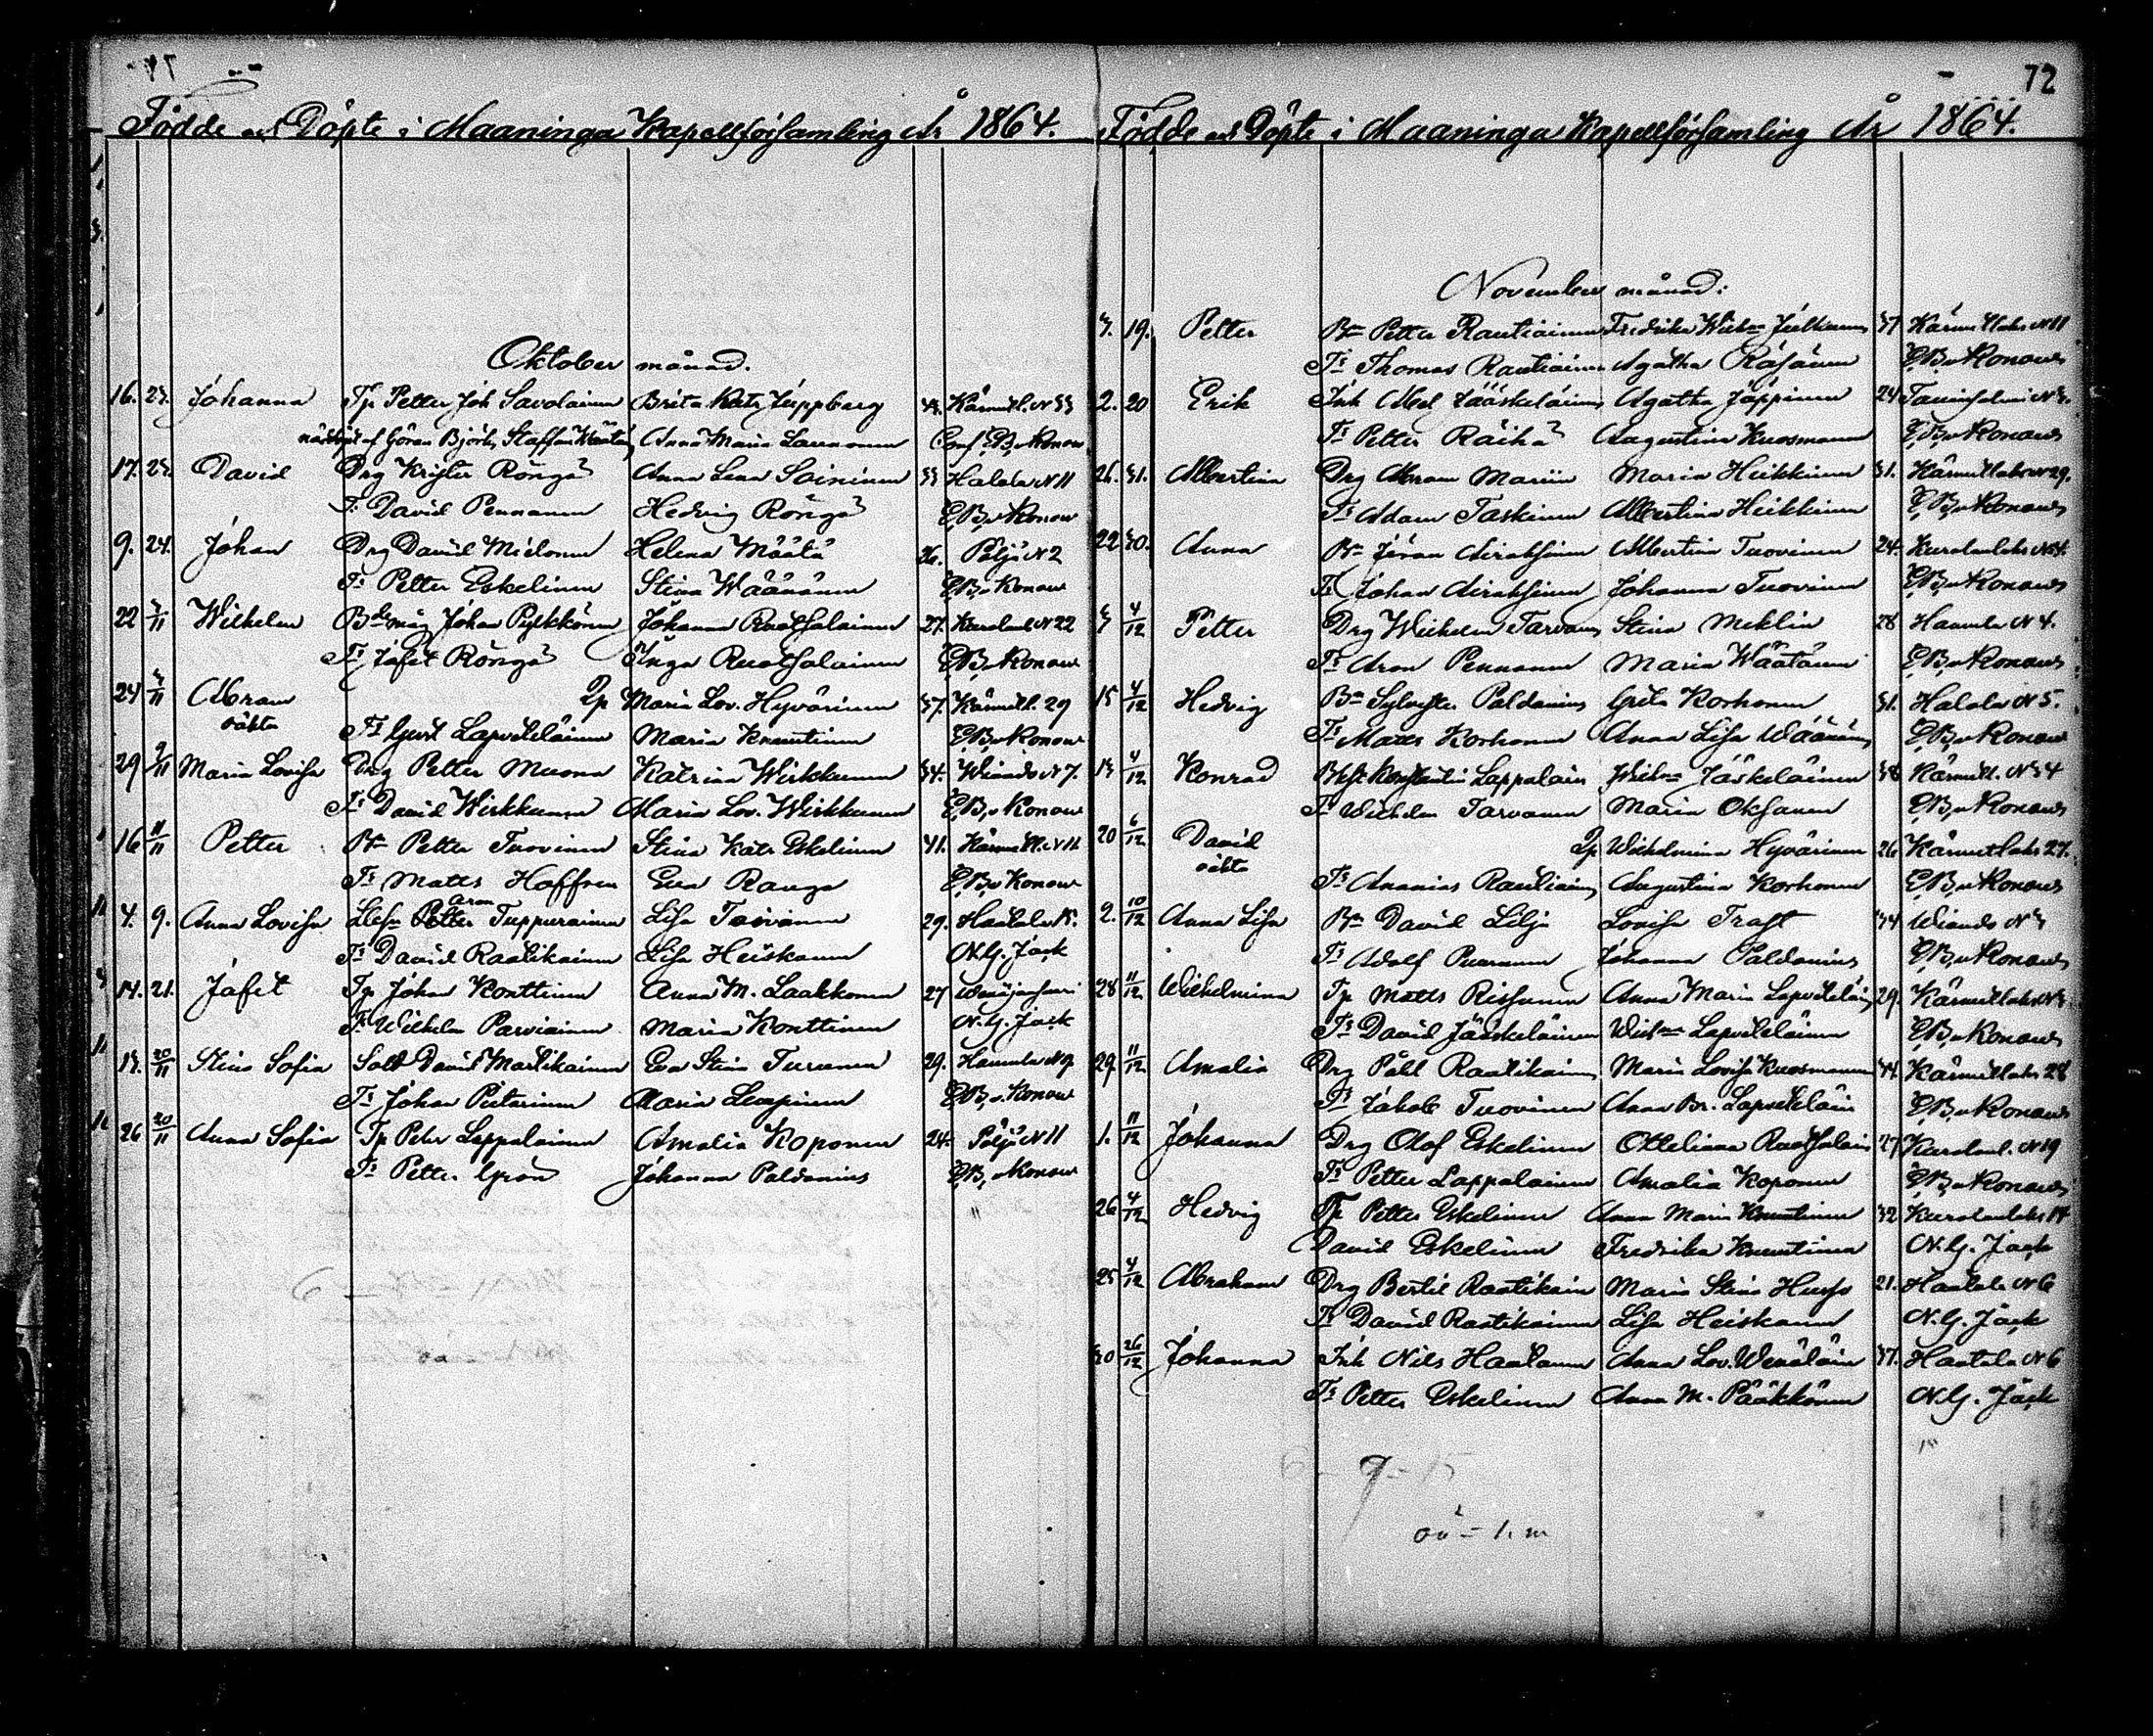 72
Födde och Döpte i Maaninga Kapellförsamling År 1864.
Oktober månad.
16. 23. Johanna Tp Petter Joh Savolainen Brita Katr Juppberg 33. Kärmetl. N 33
nöddöpt af Göran Björkl. Staffan Anna Maria Launonen Conf. E.B. v Konow
17. 23. David Drg Krister Röngä Anna Lena Soininen 33 Halola N 11
Fr David Pennanen Hedvig Röngä E.B. v Konow
9. 24. Johan Drg David Mielonen Helena Määtä 26. Pöljä N 2
Fr Petter Eskelinen Stina Wäänänen E.B. v Konow
22 3/11 Wilhelm Johan Pykkönen Johanna Ruotsalainen 27. Kurolanl. N 22
Fr Jafet Röngä Inga Ruotsalainen E.B. v Konow
24 3/11 Abram Qp Maria Lov. Hyvärinen 37. Kärmetl. 29
oäkta Fr Gust Lapveteläinen Maria Knuutinen E.B. v Konow
29 9/11 Maria Lovisa Drg Petter Muona Katrina Wirkkunen 34. Wiando N 7.
Fr David Wirkkunen Maria Lov. Wirkkunen E.B. v Konow
16 11/11 Petter Bn Petter Tuovinen Stina Katr Eskelinen 41. Kärmetl. N 11
Fr Matts Hoffren Eva Ranga E.B. v Konow
Aron
4. 9. Anna Lovisa Petter Tuppurainen Lisa Toivanen 29. Haatala
Fr David Raatikainen Lisa Heiskanen N.G. Jack
14. 21. Jafet Tp Johan Konttinen Anna M. Laakkonen 27
Fr Wilhelm Parviainen Maria Konttinen N.G. Jack
13. 20/11 Stina Sofia Sold David Martikainen Eva Stina Turunen 29. Hamula N 9
Fr Johan Pietarinen Maria Lempinen E.B. v. Konow
26 20/11 Anna Sofia Tp Petter Lappalainen Amalia Koponen 24. Pöljä N 11
Fr Petter Grön Johanna Paldanius E.B. v Konow
Födde och Döpte i Maaninga Kapellförsamling År 1864.
November månad:
3. 19. Petter Bn Petter Rautiainen Fredrika Wilh-a Julkunen 37 Kärmetlaks N 11
Fr Thomas Rautiainen Agatha Räsänen E.B. v Konow
2. 20 Erik Inh Abel Jääskeläinen Agatha Jäppinen 24 N 3.
Fr Petter Räihä Augustina Kuosmanen E.B. v Konow
26. 31. Albertina Drg Abram Mariin Maria Heikkinen 31. Kärmetlaks N 29.
Fr Adam Taskinen Albertina Heikkinen E.B. v Konow
22 30. Anna Bn Göran Airaksinen Albertina Tuovinen 24. Kurolanlaks N 4.
Fr Johan Airaksinen Johanna Tuovinen E.B. v Konow
3 4/12 Petter Drg Wilhelm Tarvanen Stina Meklin 28 Hamula N 4.
Fr Aron Pennanen Maria Wäätänen E.B. v Konow
15 4/12 Hedvig Bn Sylvester Paldanius Greta Korhonen 31. Halola N 5.
Fr Matts Korhonen Anna Lisa Wäänänen E.B. v Konow
13 4/12 Konrad Konstantin Lappalain Wilh-a Jäskeläinen 38 Kärmetl. N 34
Fr Wilhelm Tarvanen Maria Oksanen E.B. v Konow
20 6/12 David Qp Wilhelmina Hyvärinen 26 Kärmetlaks 27.
oäkta Fr Ananias Rautiainen Augustina Korhonen E.B. v Konow
2. 10/12 Anna Lisa Bn David Lilja Lovisa Trast 34 Wiando N 3
Fr Adolf Puranen Johanna Paldanius E.B. v Konow
28 11/12 Wilhelmina Tp Matts Rissanen Anna Maria Lapveteläin 29. Kärmetlaks N 3.
Fr David Jääskeläinen Wilh-a Lapveteläinen E.B. v Konow
29 11/12 Amalia Drg Påhl Raatikain Maria Lovisa Kuosmanen 34. Kärmetlaks 28
Fr Jakob Tuovinen Anna Br. Lapveteläin E.B. v Konow
1. 11/12 Johanna Drg Olof Eskelinen Otteliana Ruotsalain 27 Kurolanl. N 19
Fr Petter Lappalainen Amalia Koponen E.B. v Konow
26 4/12 Hedvig Tp Petter Eskelinen Anna Maria Knuutinen 32 Kurolanlaks 14
David Eskelinen Fredrika Knuutinen N.G. Jack
25 4/12 Abraham Drg Bertil Raatikain Maria Stina Huuss 21. Haatala N 6
Fr David Raatikainen Lisa Heiskanen N.G. Jack
30 26/12 Johanna Inh Nils Haatanen Anna Lov. Wenäläin 37. Haatala N 6
Fr Petter Eskelinen Anna M. Pääkkönen N.G. Jack
6 - 9 = 15
oä = 1. m